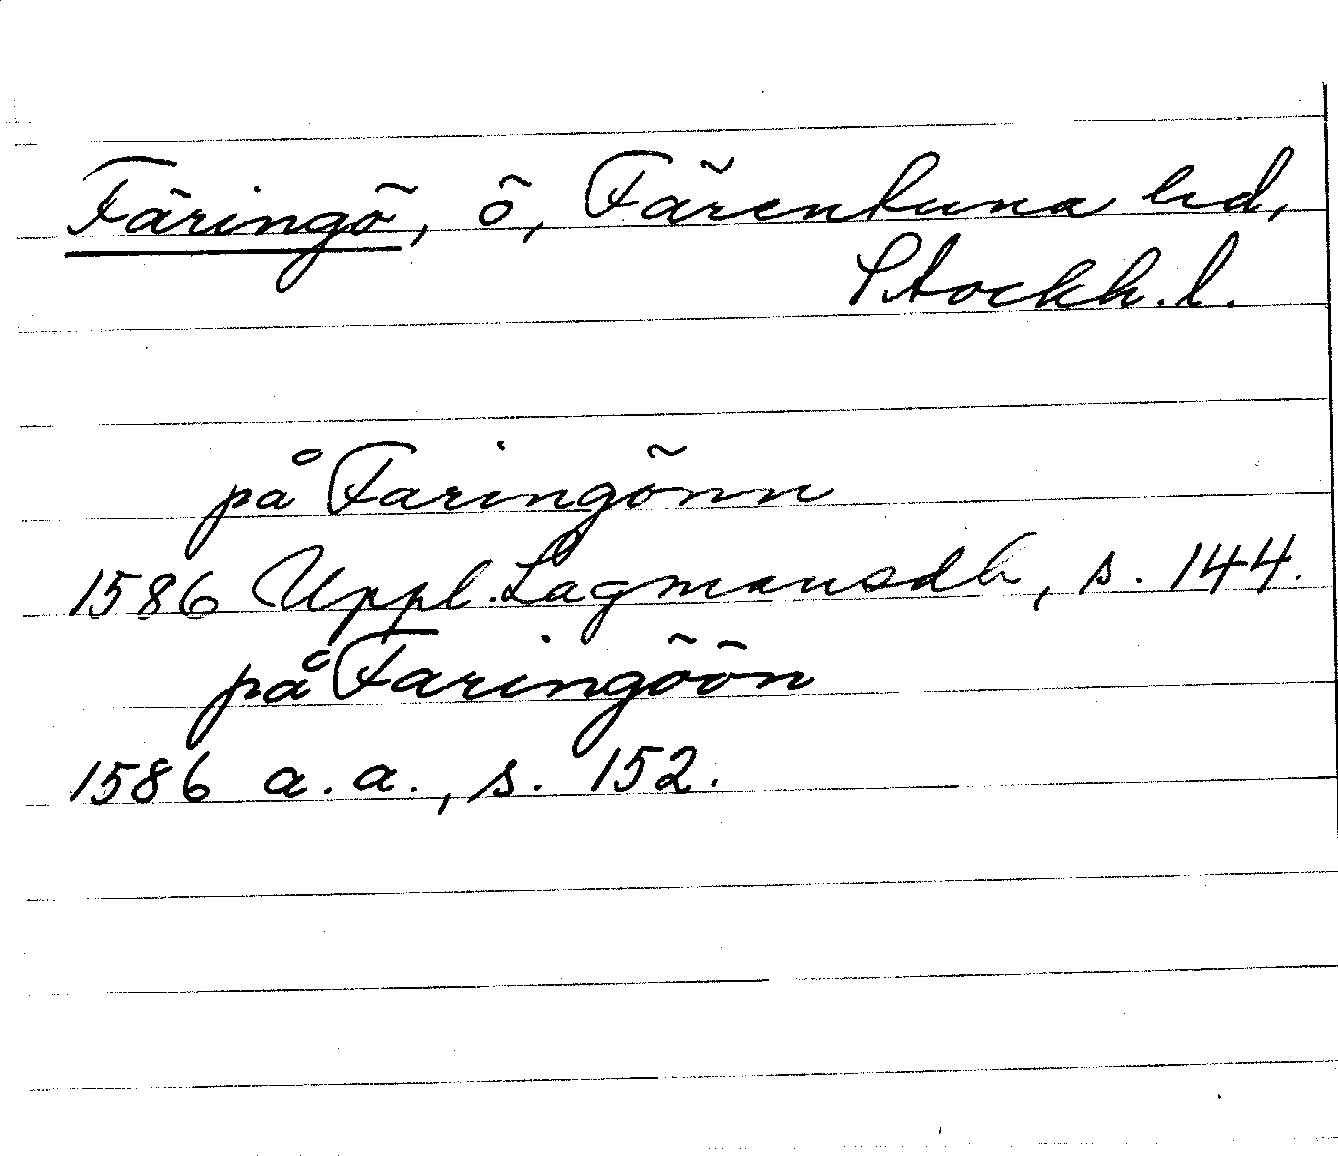 Färingö, ö, Färentuna hd,
Stockh. l.
på Faringönn
1586 Uppl. Lagmansdb, s. 144.
på Faringöön
1586 a. a., s. 152.